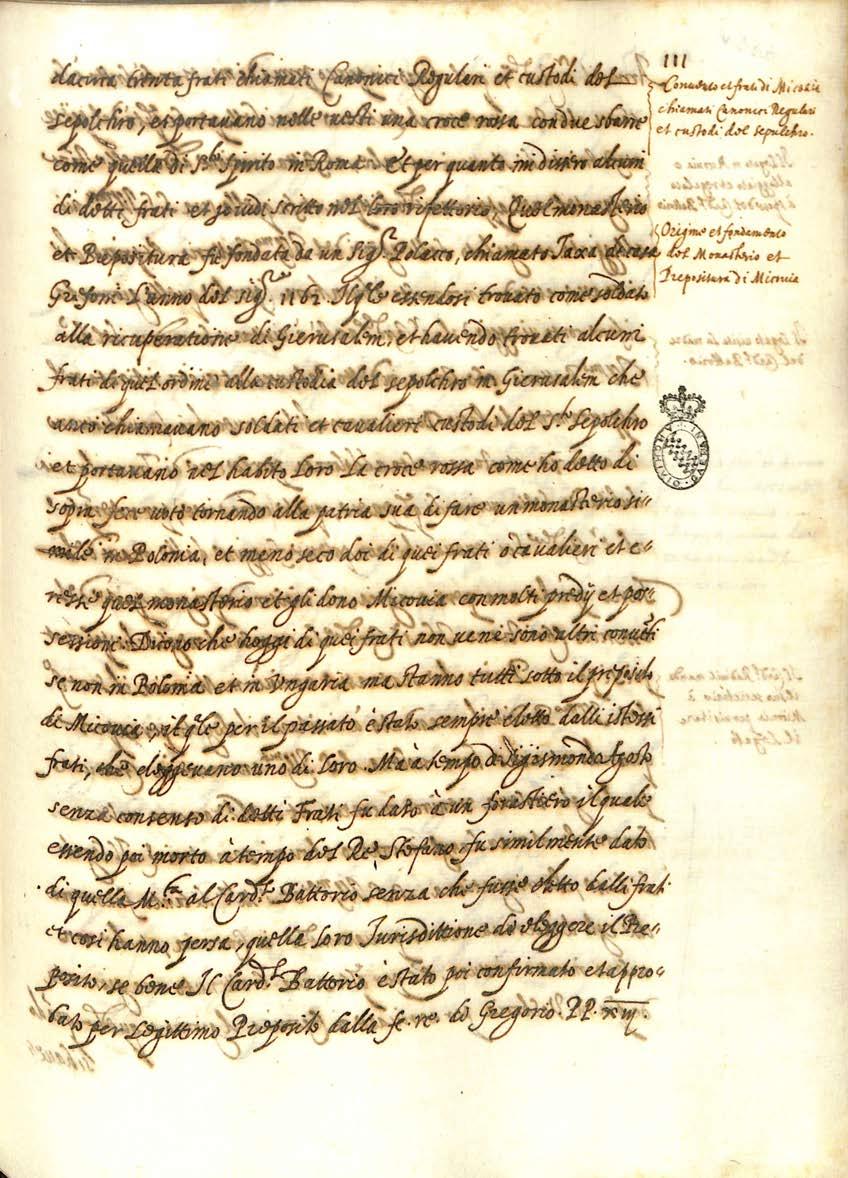 111
da circa trenta frati chiamati Canonici Regulari et custodi del
sepolchro, et portavano nelle vesti una croce rossa con due sbarre
come quella di Sto Spirito in Roma et per quanto mi dissero alcuni
di detti frati et io vidi scritto nel loro rifettorio, Quel monasterio
et Prepositura fu fondata da un Sigr. Polacco, chiamato Jaxa de casa
Grifoni l'anno del Sigre. 1162. Il qle essendosi trovato come soldato
alla ricuperatione di Gierusalem, et havendo trovati alcuni
frati di quel ordine alla custodia del sepolchro in Gierusalem che
anco chiamavano soldati et cavalieri custodi del Sto Sepolchro
et portavano nel habito loro la croce rossa come ho detto di
sopra fece voto tornando alla patria sua di fare un monasterio si=
mile in Polonia, et meno seco doi di quei frati o cavalieri et e=
resse quel monasterio et gli dono Micovia con molti predij et pos=
sessioni. Dicono che hoggi di quei frati non ve ne sono altri convti
se non in Polonia et in Ungaria ma stanno tutti sotto il preposito
di Micovia, il qle per il passato è stato sempre eletto dalli istessi
frati, che eleggevano uno di loro. Ma à tempo di Sigismondo Agosto
senza consenso di detti Frati fu dato à un forastiero il quale
essendo poi morto à tempo del Re Stefano, fu similmente dato
di quella M.tà al Card.l Battorio senza che fusse eletto dalli frati
et cosi hanno persa, quella loro Jurisdittione de eleggere il Pre=
posito, se bene Il Card.l Battorio è stato poi confirmato et appro=
bato per legittimo Preposito dalla fe. re. di Gregorio. PP. xiij.
Convento et frati di Micovia
chiamati Canonici Regulari
et custodi del sepulchro.
Origine et fondamento
del Monasterio et
Prepositura di Micovia